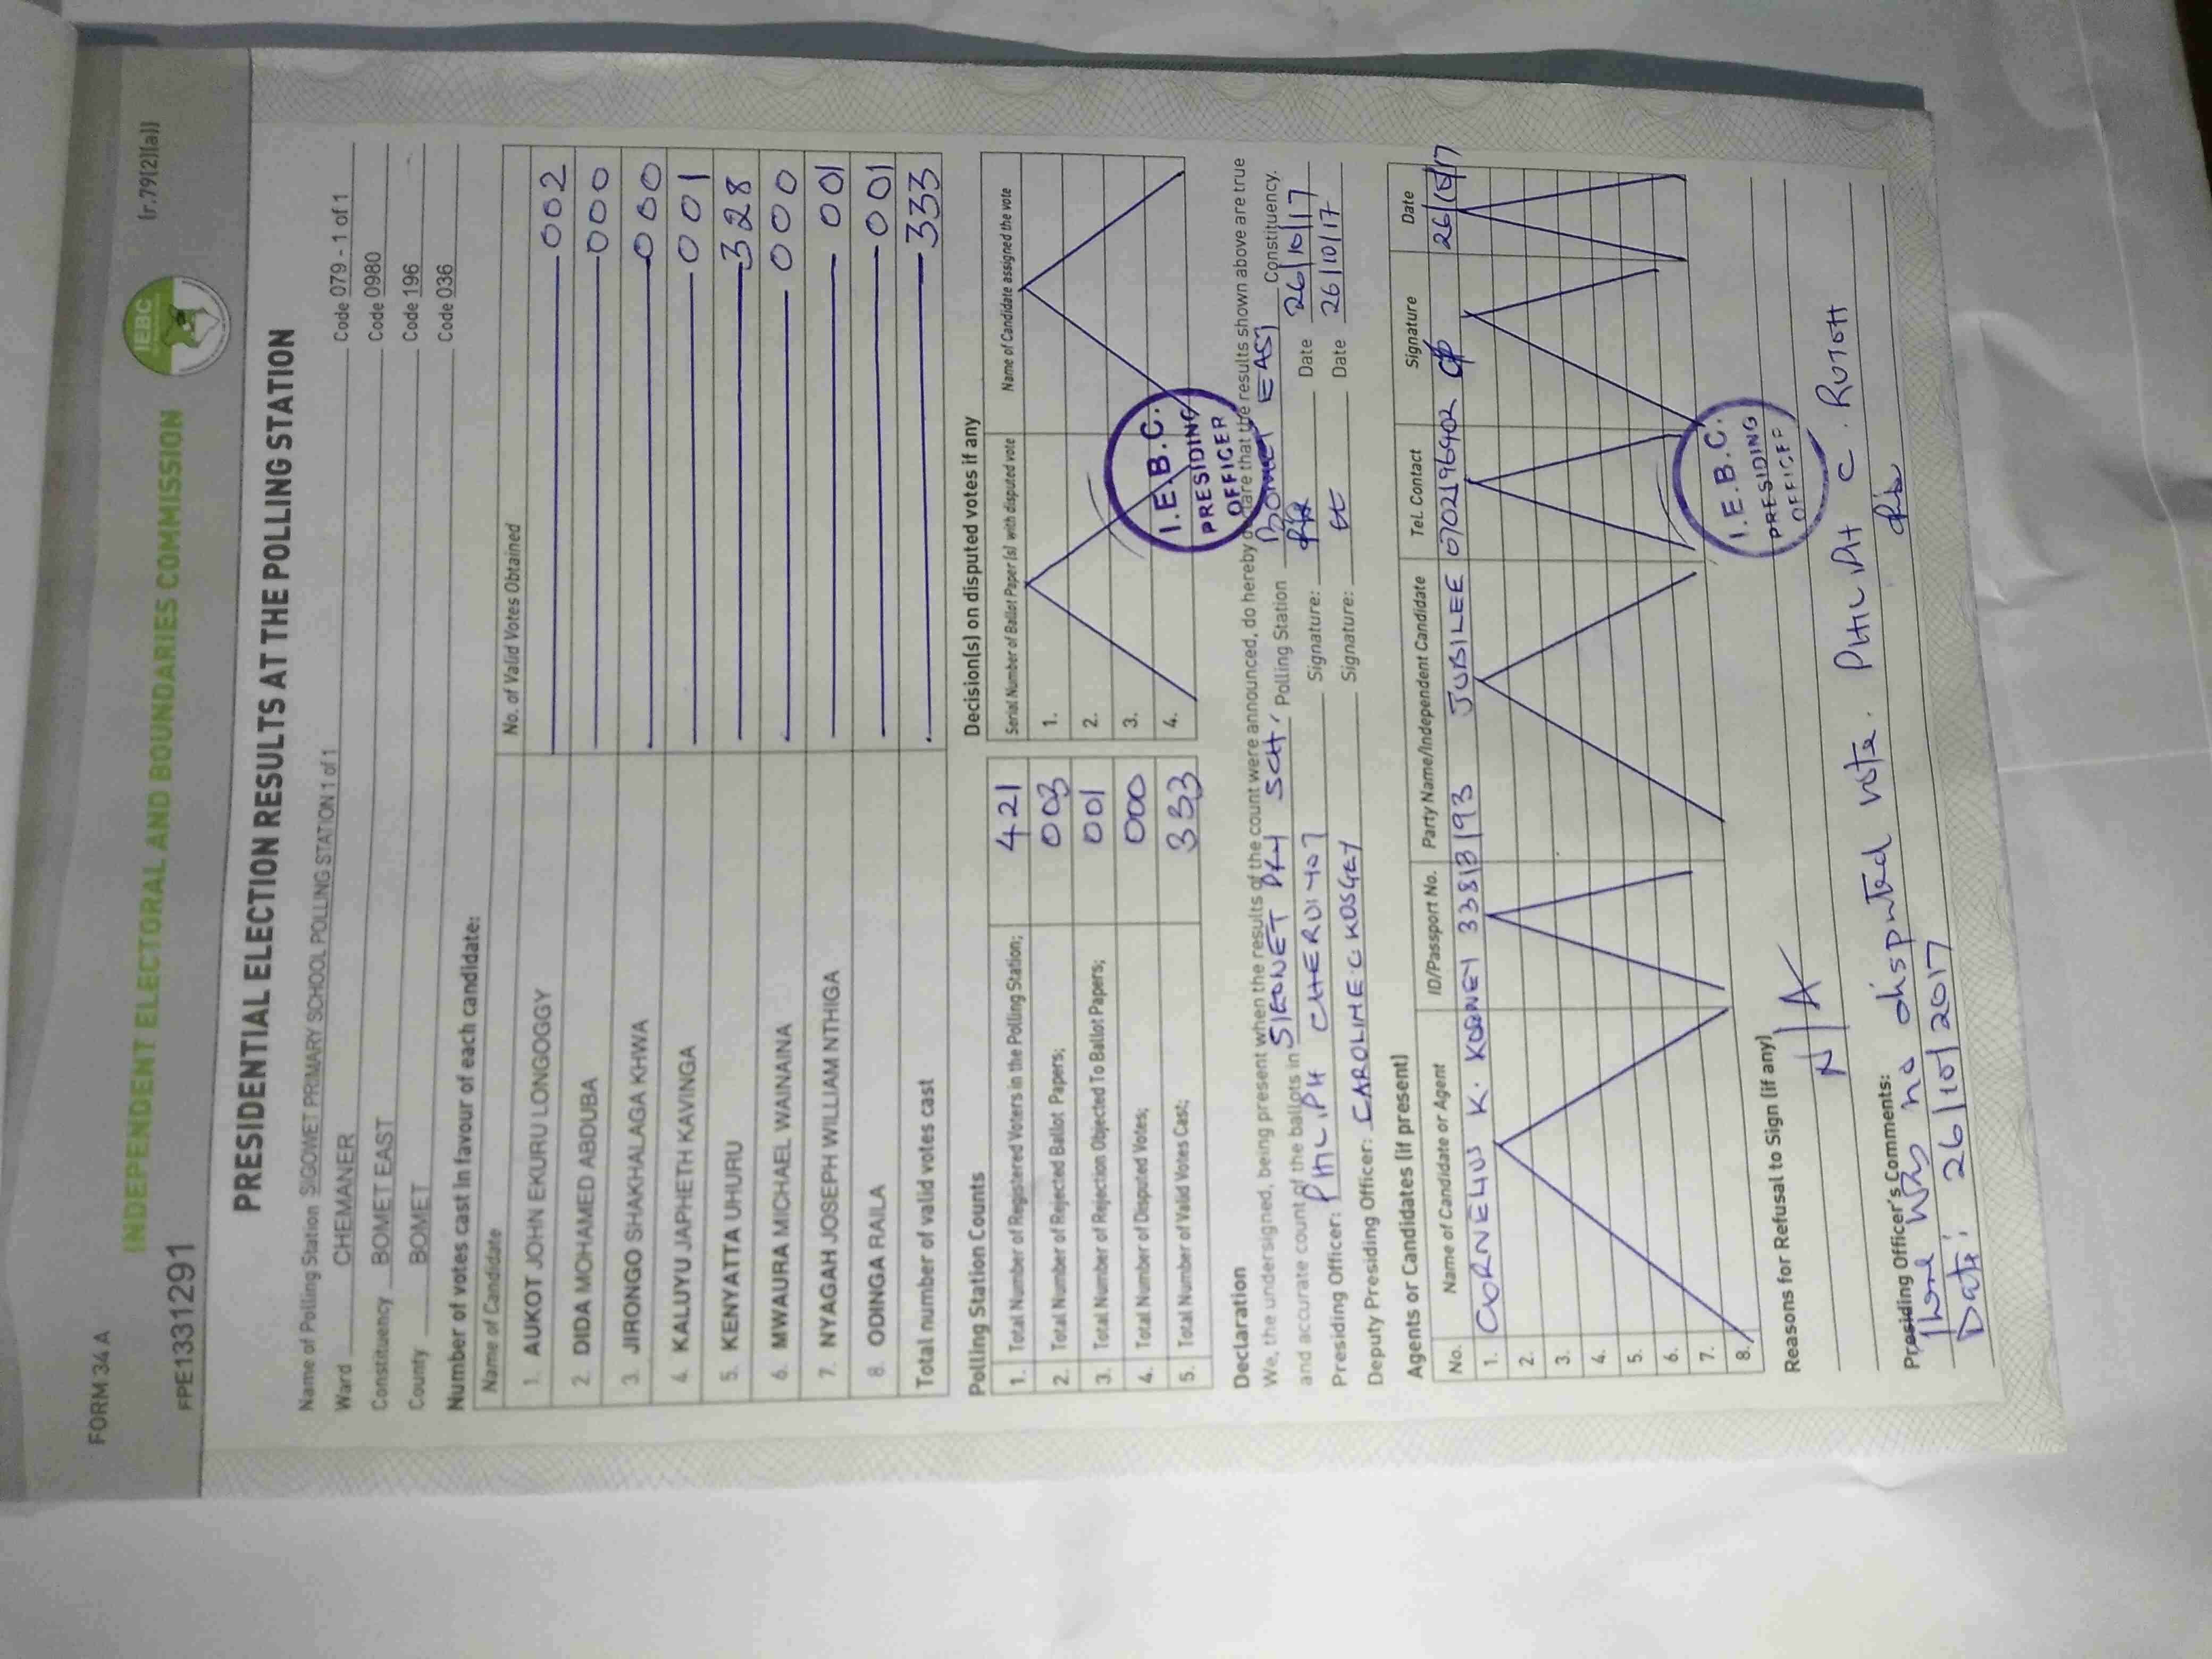 FORM 34 A
INDEPENDENT ELECTORAL AND BOUNDARIES COMMISSION
IEBC
(r.79(2)(a))
FPE1331291
PRESIDENTIAL ELECTION RESULTS AT THE POLLING STATION
Name of Polling Station SIGOWET PRIMARY SCHOOL POLLING STATION 1 of 1 Code 079 - 1 of 1
Ward CHEMANER Code 0980
Constituency BOMET EAST Code 196
County BOMET Code 036
Number of votes cast in favour of each candidate:
Name of Candidate No. of Valid Votes Obtained
1. AUKOT JOHN EKURU LONGOGGY 002
2. DIDA MOHAMED ABDUBA 000
3. JIRONGO SHAKHALAGA KHWA 000
4. KALUYU JAPHETH KAVINGA 001
5. KENYATTA UHURU 328
6. MWAURA MICHAEL WAINAINA 000
7. NYAGAH JOSEPH WILLIAM NTHIGA 001
8. ODINGA RAILA 001
Total number of valid votes cast 333
Polling Station Counts
1. Total Number of Registered Voters in the Polling Station; 421
2. Total Number of Rejected Ballot Papers; 003
3. Total Number of Rejection Objected To Ballot Papers; 001
4. Total Number of Disputed Votes; 000
5. Total Number of Valid Votes Cast; 333
Decision(s) on disputed votes if any
Serial Number of Ballot Paper (s) with disputed vote Name of Candidate assigned the vote
1.
2.
3.
4.
I.E.B.C.
PRESIDING
OFFICER
Declaration
We, the undersigned, being present when the results of the count were announced, do hereby declare that the results shown above are true
and accurate count of the ballots in SIGOWET PRY SCH, Polling Station BOMET EAST Constituency.
Presiding Officer: PHILIPH Signature: Date 26/10/17
Deputy Presiding Officer: CAROLINE.C KOSGEY Signature: Date 26/10/17
Agents or Candidates (if present)
No. Name of Candidate or Agent ID/Passport No. Party Name/Independent Candidate Tel. Contact Signature Date
1. CORNELIUS K. JUBILEE 0702196402 26/10/17
2.
3.
4.
5.
6.
7.
8.
I.E.B.C.
PRESIDING
OFFICER
Reasons for Refusal to Sign (if any)
N/A
Presiding Officer's Comments:
There was no disputed vote. PHILIPH C. RUTOH
Date: 26/10/2017